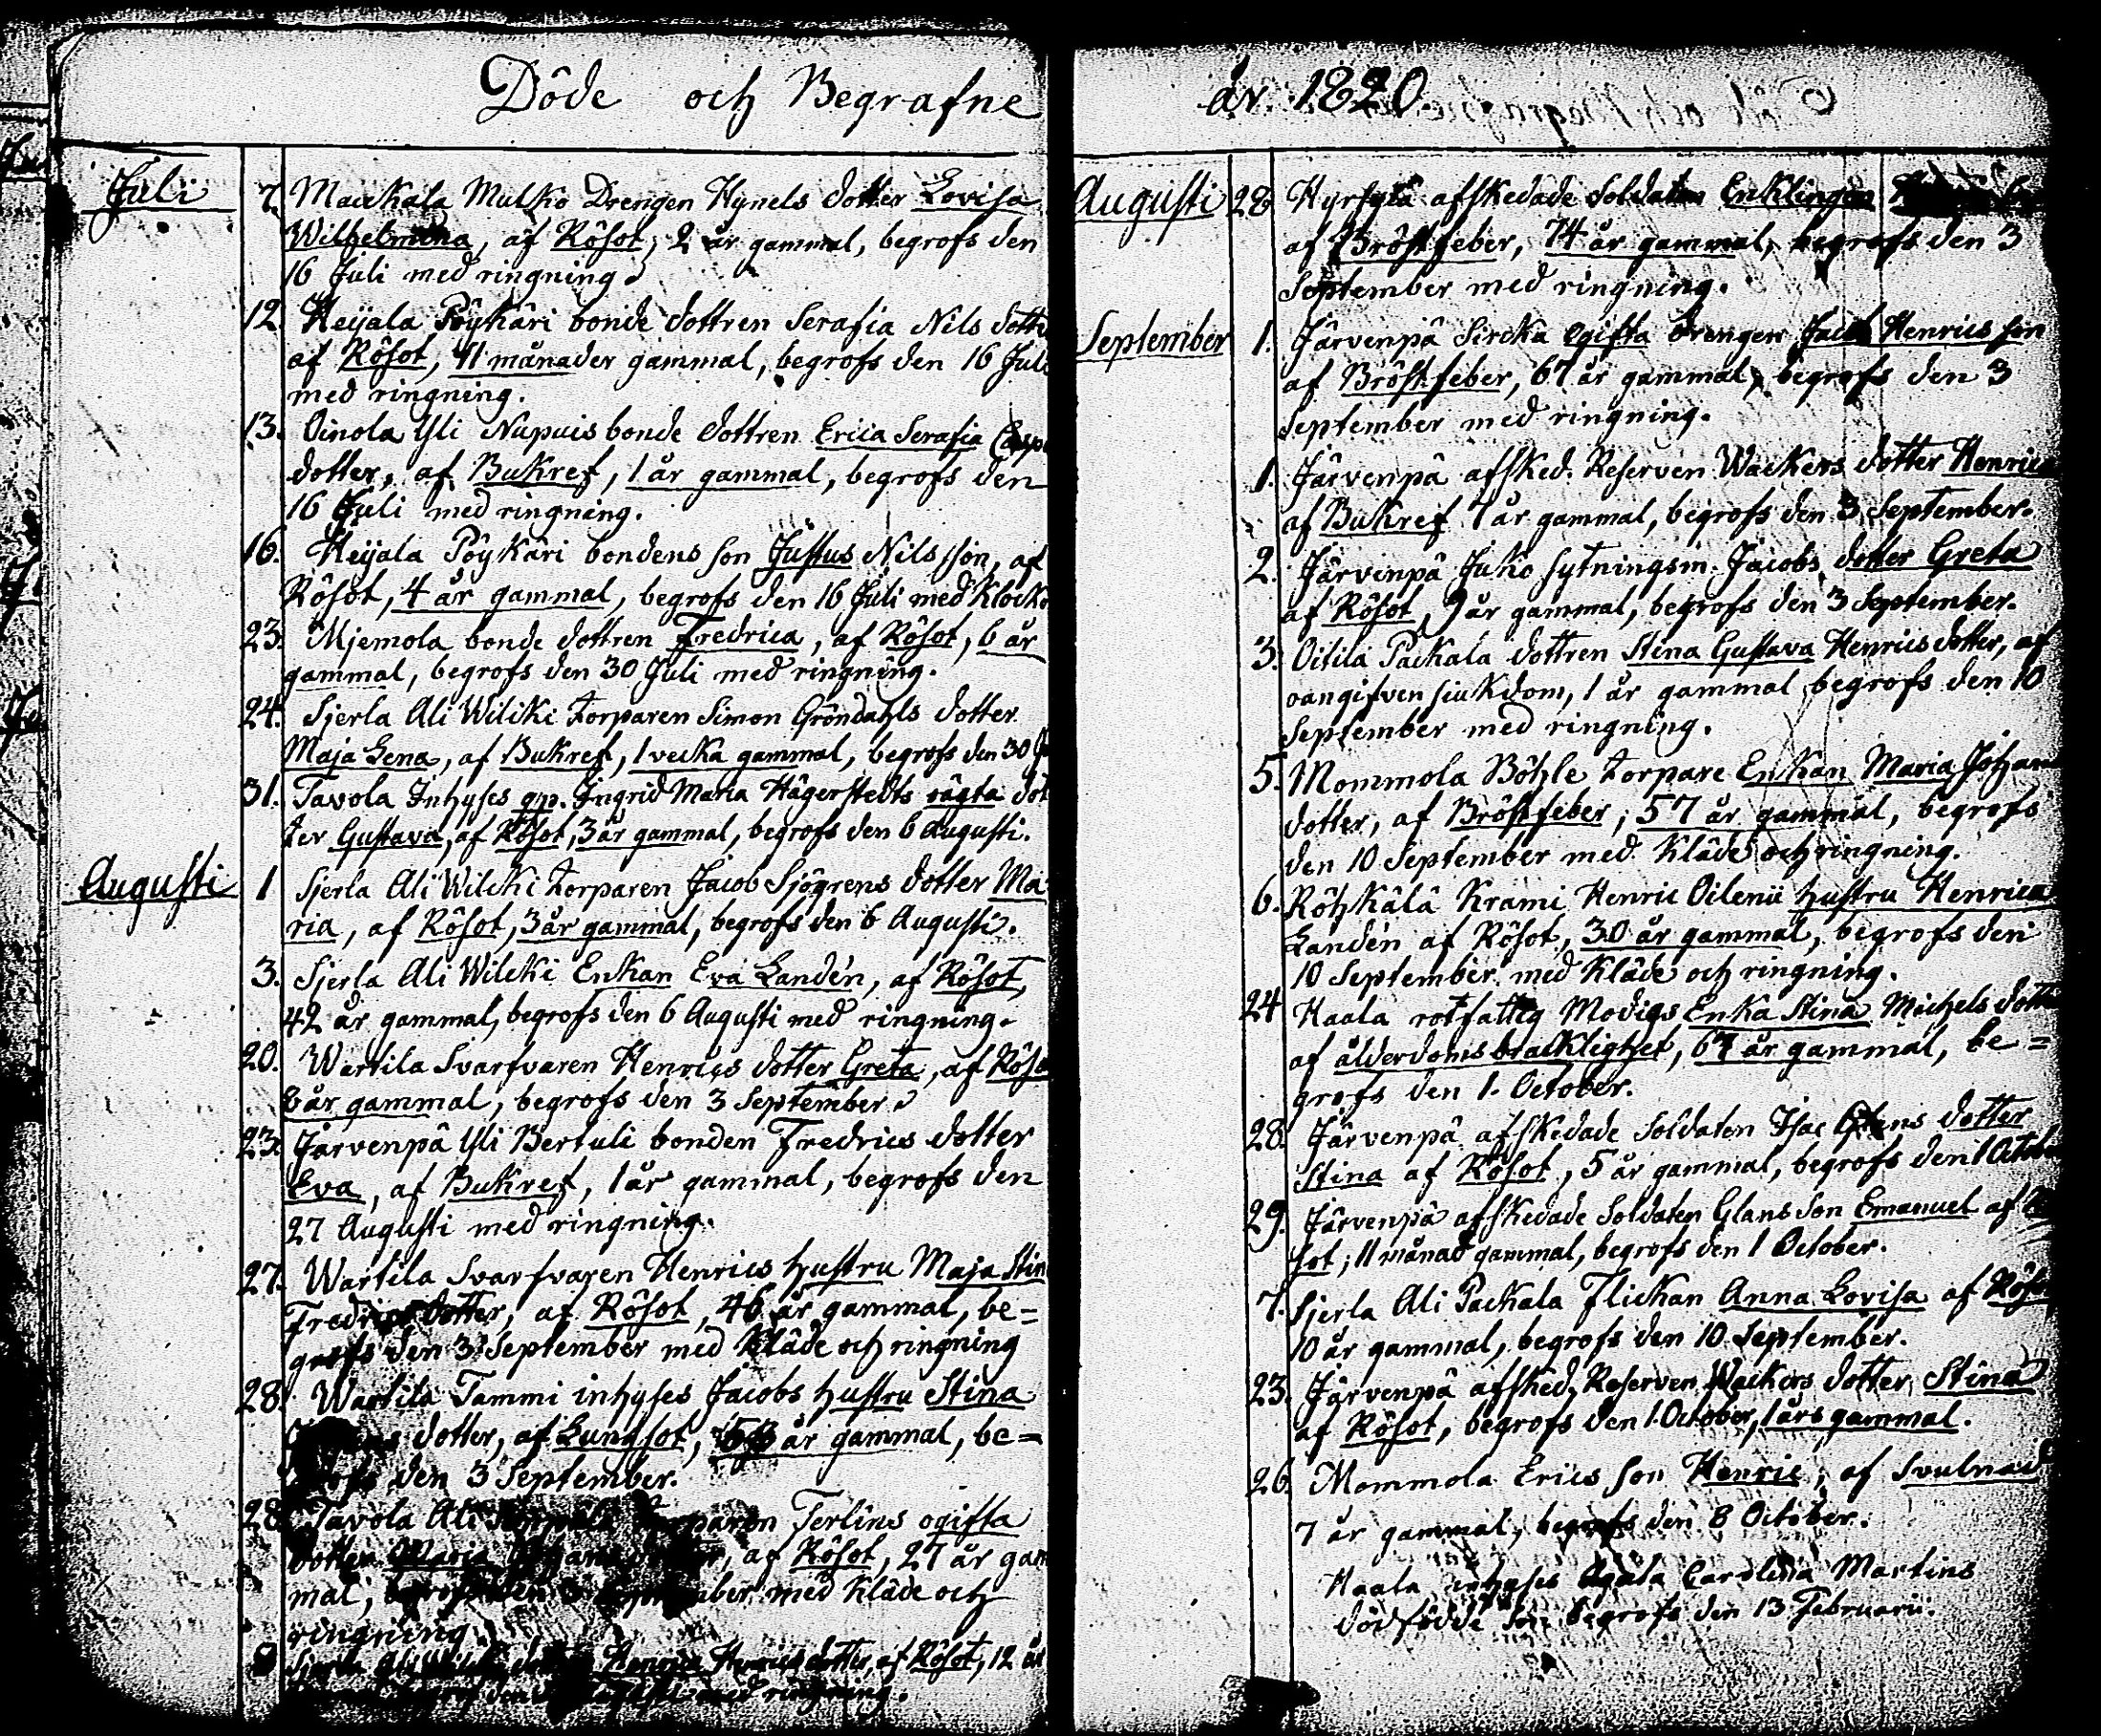 Döde och Begrafne
Juli 7. Mackala Mulko Drengen Hynels dotter Lovisa
Wilhelmina, af Rösot, 2 år gammal, begrofs den
16 Juli med ringning.
12. Heijala Pöykäri bonde dottren Serafia Nils dotter
af Rösot, 11 månader gammal, begrofs den 16 Juli
med ringning.
13. Oinola Yli Nupuis bonde dottren Erica Serafia
dotter, af Bukref, 1 år gammal, begrofs den
16 Juli med ringning.
16. Heijala Pöykäri bondens son Justus Nilsson, af
Rösot, 4 år gammal, begrofs den 16 Juli med Klocko
23. Mjemola bonde dottren Fredrica, af Rösot, 6 år
gammal, begrofs den 30 Juli med ringning.
24. Sjerla Ali Wilcki torparen Simon Gröndahls dotter
Maja Lena, af Bukref, 1 vecka gammal, begrofs den 30
31. Tavola Inhyses qp. Ingrid Maria Hägerstedts oägta dot
ter Gustava, af Rösot, 3 år gammal, begrofs den 6 Augusti.
Augusti 1 Sjerla Ali Wilcki torparen Jacob Sjögrens dotter Ma
ria, af Rösot, 3 år gammal, begrofs den 6 Augusti.
3. Sjerla Ali Wilcki Enkan Eva Landén, af Rösot,
42 år gammal, begrofs den 6 Augusti med ringning.
20. Wartila Svarfvaren Henrics dotter Greta, af Rösot
8 år gammal, begrofs den 3 September.
23. Järvenpä Yli Bertuli bonden Fredrics dotter
Eva, af Bukref, 1 år gammal, begrofs den
27 Augusti med ringning.
27. Wartila Svarfvaren Henrics hustru Maja Stin
Fredrics dotter, af Rösot, 46 år gammal, be=
grofs den 3 September med Kläde och ringning
28. Wartila Tammi inhyses Jacobs hustru Stina
dotter, af Lungsot, år gammal, be=
grofs den 3 September.
28. Tavola Ali torparen Terlins ogifta
dotter Maria, af Rösot, 27 år gam
mal, begrofs den 3 September med Kläde och
ringning.
Sjerla Henrica Henrics dotter, af Rösot, 12 år
år 1820.
Augusti 28 Hyrsylä afskedade Soldaten Enklingen
af Bröstfeber, 74 år gammal, begrofs den 3
September med ringning.
September 1. Järvenpä Sircka ogifta drengen Jacob Henrics son
af Bröstfeber, 67 år gammal, begrofs den 3
September med ringning.
1. Järvenpä afsked. Reserven Wackers dotter Henrica
af Bukref 7 år gammal, begrofs den 3 September.
2. Järvenpä Juko sytningsm. Jacobs dotter Greta
af Rösot, 9 år gammal, begrofs den 3 September.
3. Oitila Packala dottren Stina Gustava Henrics dotter, af
oangifven siukdom, 1 år gammal begrofs den 10
September med ringning.
5. Mommola Böhle torpare Enkan Maria Johans
dotter, af Bröstfeber, 57 år gammal, begrofs
den 10 September med Kläde och ringning.
6. Röhkälä Krami Henric Oilenii hustru Henrica
Landén af Rösot, 30 år gammal, begrofs den
10 September med Kläde och ringning.
24 Haala rotfattig Modigs Enka Stina Michels dotter
af ålderdoms bracklighet, 67 år gammal, be=
grofs den 1. October.
28. Järvenpä afskedade Soldaten Isac Glans dotter
Stina af Rösot, 5 år gammal, begrofs den 1 October
29. Järvenpä afskedade Soldaten Glans Son Emanuel af Rö
sot, 11 månad gammal, begrofs den 1 October.
7. Sjerla Ali Packala Flickan Anna Lovisa af Rösot
10 år gammal, begrofs den 10 September.
23. Järvenpä afsked. Reserven Wackers dotter Stina
af Rösot, begrofs den 1. October, 1 års gammal.
26. Mommola Erics son Henric, af Svulnad
7 år gammal, begrofs den 8 October.
Haala inhyses Carolina Martins
dödfödde son begrofs den 13 Februarii.